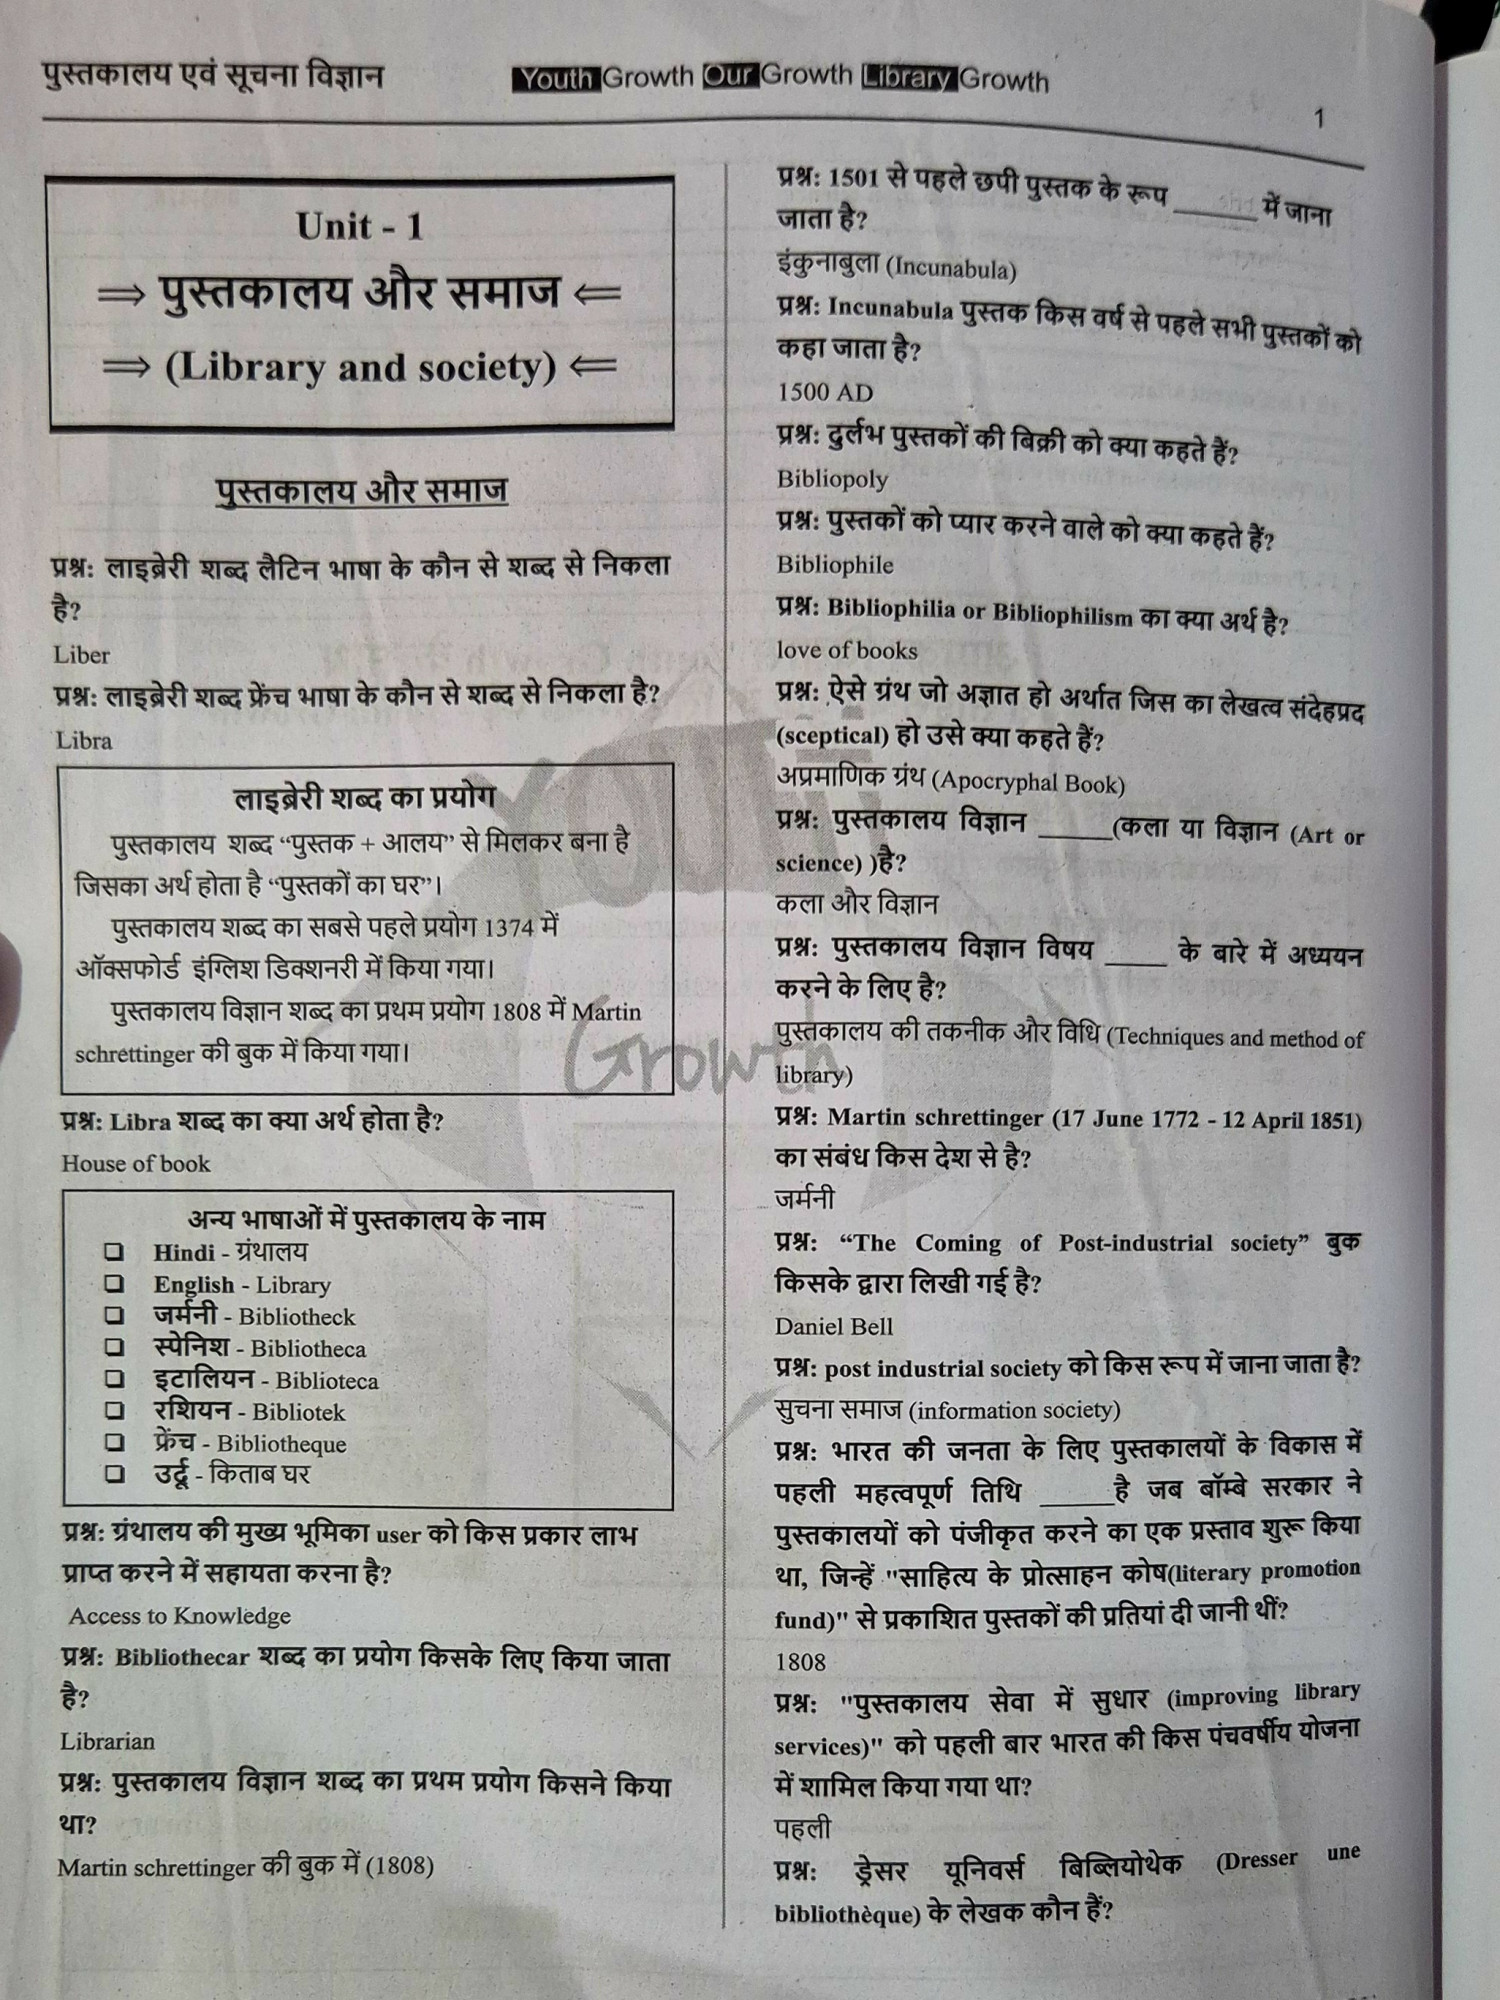 पुस्तकालय एवं सूचना विज्ञान
Youth Growth Our Growth Library Growth
1
Unit - 1
⇒ पुस्तकालय और समाज ⇐
⇒ (Library and society) ⇐
पुस्तकालय और समाज
प्रश्न: लाइब्रेरी शब्द लैटिन भाषा के कौन से शब्द से निकला
है?
Liber
प्रश्न: लाइब्रेरी शब्द फ्रेंच भाषा के कौन से शब्द से निकला है?
Libra
लाइब्रेरी शब्द का प्रयोग
पुस्तकालय शब्द “पुस्तक + आलय” से मिलकर बना है
जिसका अर्थ होता है “पुस्तकों का घर”।
पुस्तकालय शब्द का सबसे पहले प्रयोग 1374 में
ऑक्सफोर्ड इंग्लिश डिक्शनरी में किया गया।
पुस्तकालय विज्ञान शब्द का प्रथम प्रयोग 1808 में Martin
schrettinger की बुक में किया गया।
प्रश्न: Libra शब्द का क्या अर्थ होता है?
House of book
अन्य भाषाओं में पुस्तकालय के नाम
❑ Hindi - ग्रंथालय
❑ English - Library
❑ जर्मनी - Bibliotheck
❑ स्पेनिश - Bibliotheca
❑ इटालियन - Biblioteca
❑ रशियन - Bibliotek
❑ फ्रेंच - Bibliotheque
❑ उर्दू - किताब घर
प्रश्न: ग्रंथालय की मुख्य भूमिका user को किस प्रकार लाभ
प्राप्त करने में सहायता करना है?
Access to Knowledge
प्रश्न: Bibliothecar शब्द का प्रयोग किसके लिए किया जाता
है?
Librarian
प्रश्न: पुस्तकालय विज्ञान शब्द का प्रथम प्रयोग किसने किया
था?
Martin schrettinger की बुक में (1808)
प्रश्न: 1501 से पहले छपी पुस्तक के रूप ______ में जाना
जाता है?
इंकुनाबुला (Incunabula)
प्रश्न: Incunabula पुस्तक किस वर्ष से पहले सभी पुस्तकों को
कहा जाता है?
1500 AD
प्रश्न: दुर्लभ पुस्तकों की बिक्री को क्या कहते हैं?
Bibliopoly
प्रश्न: पुस्तकों को प्यार करने वाले को क्या कहते हैं?
Bibliophile
प्रश्न: Bibliophilia or Bibliophilism का क्या अर्थ है?
love of books
प्रश्न: ऐसे ग्रंथ जो अज्ञात हो अर्थात जिस का लेखत्व संदेहप्रद
(sceptical) हो उसे क्या कहते हैं?
अप्रमाणिक ग्रंथ (Apocryphal Book)
प्रश्न: पुस्तकालय विज्ञान _____(कला या विज्ञान (Art or
science) )है?
कला और विज्ञान
प्रश्न: पुस्तकालय विज्ञान विषय ____ के बारे में अध्ययन
करने के लिए है?
पुस्तकालय की तकनीक और विधि (Techniques and method of
library)
प्रश्न: Martin schrettinger (17 June 1772 - 12 April 1851)
का संबंध किस देश से है?
जर्मनी
प्रश्न: “The Coming of Post-industrial society” बुक
किसके द्वारा लिखी गई है?
Daniel Bell
प्रश्न: post industrial society को किस रूप में जाना जाता है?
सुचना समाज (information society)
प्रश्न: भारत की जनता के लिए पुस्तकालयों के विकास में
पहली महत्वपूर्ण तिथि _____है जब बॉम्बे सरकार ने
पुस्तकालयों को पंजीकृत करने का एक प्रस्ताव शुरू किया
था, जिन्हें "साहित्य के प्रोत्साहन कोष(literary promotion
fund)" से प्रकाशित पुस्तकों की प्रतियां दी जानी थीं?
1808
प्रश्न: "पुस्तकालय सेवा में सुधार (improving library
services)" को पहली बार भारत की किस पंचवर्षीय योजना
में शामिल किया गया था?
पहली
प्रश्न: ड्रेसर यूनिवर्स बिब्लियोथेक (Dresser une
bibliothèque) के लेखक कौन हैं?
Growth